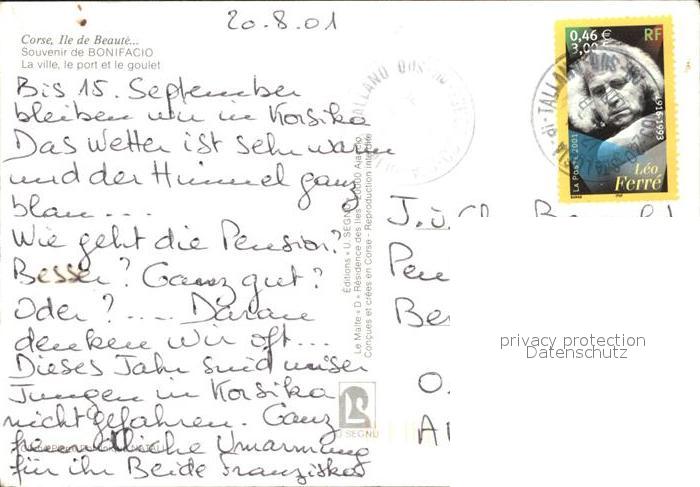 20.8.01
Corse, Ile de Beauté...
Souvenir de BONIFACIO
La ville, le port et le goulet
Bis 15. September
bleiben wir in Korsika
Das Wetter ist sehr warm
und der Himmel ganz
blau ...
Wie geht die Pension?
Besser? Ganz gut?
Oder? .... Daran
denken wir oft...
Dieses Jahr sind unser
Jungen in Korsika
nicht gefahren. Ganz
freundliche Umarmung
für ihr Beide Franziska
Editions « U. SEGNU »
Le Malte « D » Résidence des Iles - 20000 Ajaccio
Conçues et créées en Corse - Reproduction interdite
U. SEGNU
0,46 €
3,00 F
RF
1916-1993
La Poste 2001
Léo
Ferré
TALLANO
TALLANO
J. u.
Pen
Be
O.
A
privacy protection
Datenschutz